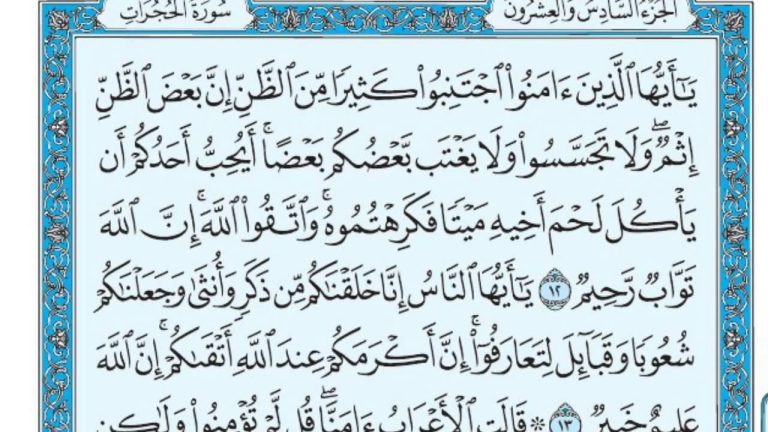 سُورَةُ الحُجُرَاتِ
الجُزْءُ السَّادِسُ وَالعِشْرُونَ
يَٰٓأَيُّهَا ٱلَّذِينَ ءَامَنُوا۟ ٱجْتَنِبُوا۟ كَثِيرًا مِّنَ ٱلظَّنِّ إِنَّ بَعْضَ ٱلظَّنِّ
إِثْمٌ ۖ وَلَا تَجَسَّسُوا۟ وَلَا يَغْتَب بَّعْضُكُم بَعْضًا ۚ أَيُحِبُّ أَحَدُكُمْ أَن
يَأْكُلَ لَحْمَ أَخِيهِ مَيْتًا فَكَرِهْتُمُوهُ ۚ وَٱتَّقُوا۟ ٱللَّهَ ۚ إِنَّ ٱللَّهَ
تَوَّابٌ رَّحِيمٌ ١٢ يَٰٓأَيُّهَا ٱلنَّاسُ إِنَّا خَلَقْنَٰكُم مِّن ذَكَرٍ وَأُنثَىٰ وَجَعَلْنَٰكُمْ
شُعُوبًا وَقَبَآئِلَ لِتَعَارَفُوٓا۟ ۚ إِنَّ أَكْرَمَكُمْ عِندَ ٱللَّهِ أَتْقَىٰكُمْ ۚ إِنَّ ٱللَّهَ
عَلِيمٌ خَبِيرٌ ١٣ ۞ قَالَتِ ٱلْأَعْرَابُ ءَامَنَّا ۖ قُل لَّمْ تُؤْمِنُوا۟ وَلَٰكِن